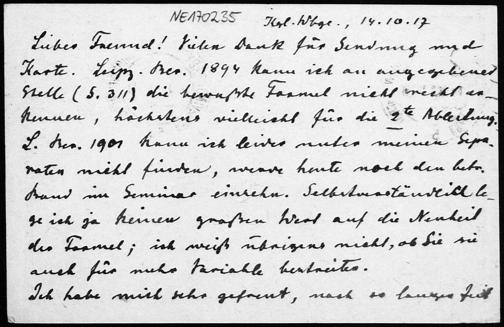 NE170235
Kgl. Wbge., 14.10.17
Lieber Freund! Vielen Dank für Sendung und
Karte. Leipz. Ber. 1894 kann ich an angegebener
Stelle (S. 311) die bewußte Formel nicht recht er-
kennen, höchstens vielleicht für die 2te Ableitung.
L. Ber. 1901 kann ich leider unter meinen Sepa-
raten nicht finden, werde heute noch den betr.
Band im Seminar einsehn. Selbstverständlich le-
ge ich ja keinen großen Wert auf die Neuheit
der Formel; ich weiß übrigens nicht, ob Sie sie
auch für mehr Variable
Ich habe mich sehr gefreut, nach so langer Zeit